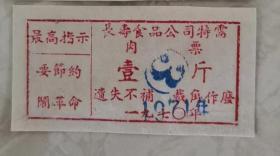 最高指示
要節約
閙革命
長壽食品公司特需
肉票
壹斤
遺失不補 裁角作廢
一九七六年